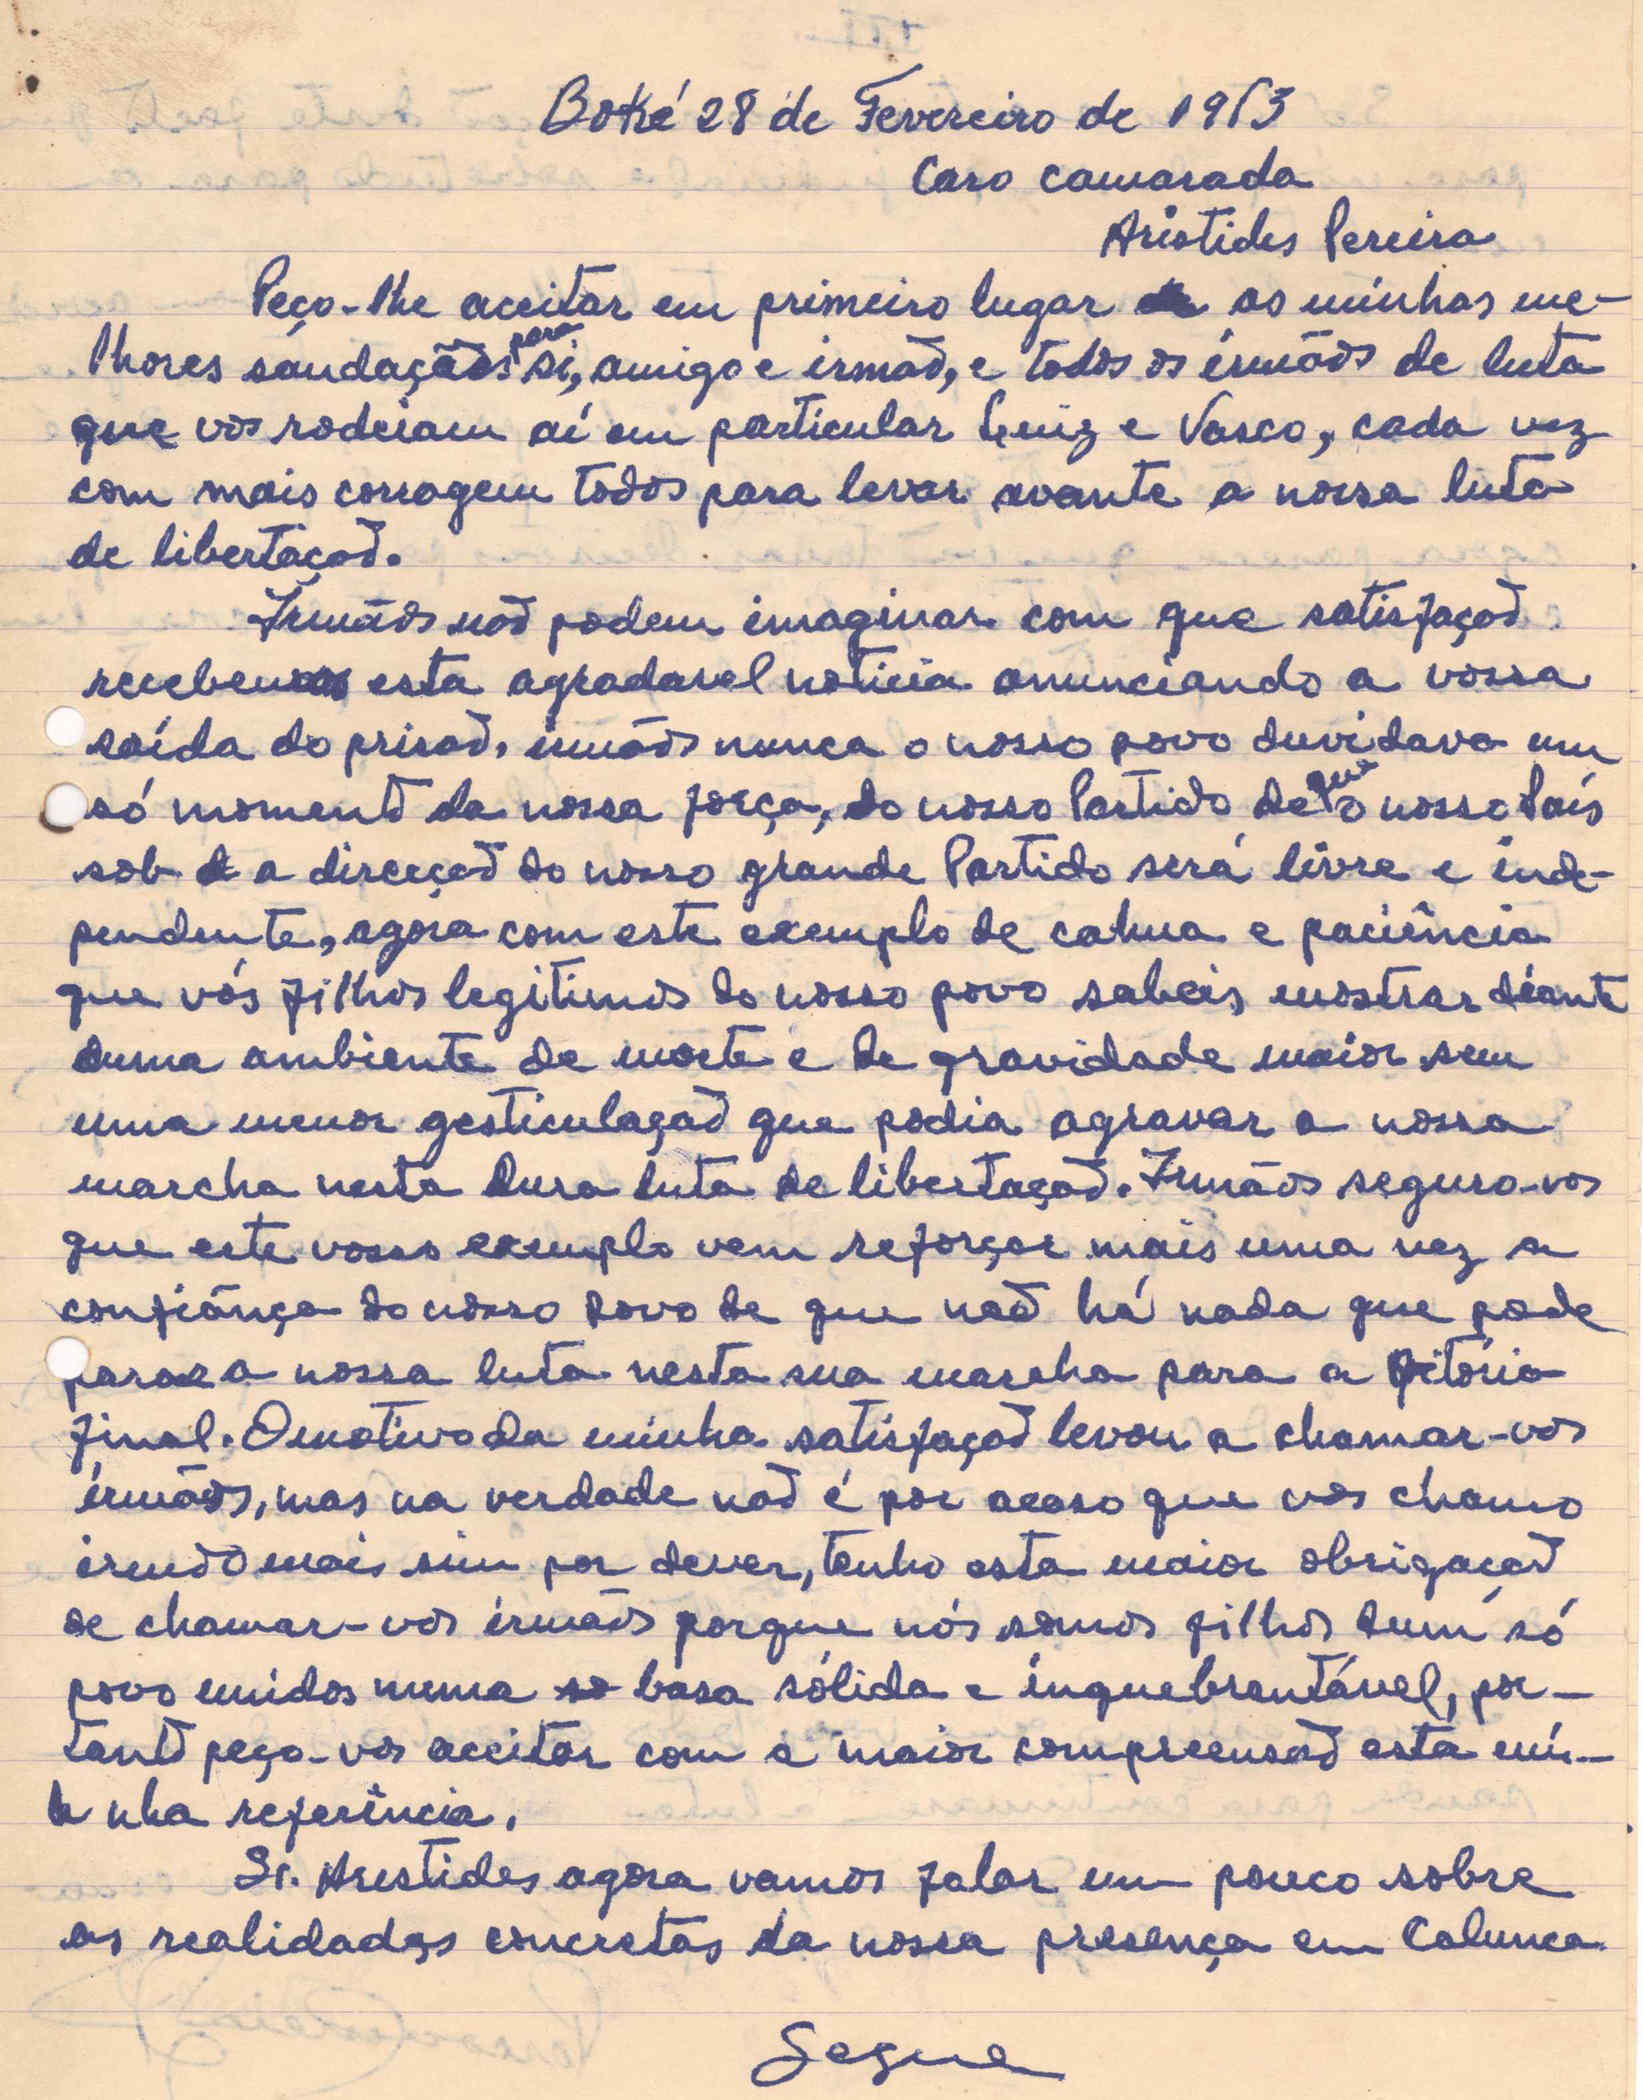 Boké 28 de Fevereiro de 1963
Caro camarada
Aristides Pereira
Peço-lhe aceitar em primeiro lugar as minhas me-
lhores saudaçãos para si, amigo e irmão, e todos os irmãos de luta
que vos rodeiam aí em particular Luiz e Vasco, cada vez
com mais corragem todos para levar avante a nossa luta
de libertaçaõ.
Irmãos naõ podem imaginar com que satisfaçaõ
recebemos esta agradavel noticia anunciando a vossa
saída do prisaõ, irmãos nunca o nosso povo duvidava um
só momento da nossa força, do nosso Partido de que o nosso País
sob a direcçaõ do nosso grande Partido será livre e inde-
pendente, agora com este exemplo de calma e paciência
que vós filhos legitimos do nosso povo sabeis mostrar diante
duma ambiente de morte e de gravidade maior sem
uma menor gesticulaçaõ que podia agravar a nossa
marcha nesta dura luta de libertaçaõ. Irmãos seguro-vos
que este vosso exemplo vem reforçar mais uma vez a
confiança do nosso povo de que naõ há nada que pode
parar a nossa luta nesta sua marcha para a vitória
final. O motivo da minha satisfaçaõ levou a chamar-vos
irmãos, mas na verdade naõ é por acaso que vos chamo
irmão mais sim por dever, tenho esta maior obrigaçaõ
de chamar-vos irmãos porque nós somos filhos dum só
povo unidos numa basa sólida e inquebrantável, por-
tanto peço-vos aceitar com a maior compreensaõ esta mi-
nha referência.
Sr. Arestides agora vamos falar um pouco sobre
as realidades concretas da nossa presença em Calunca
Segue